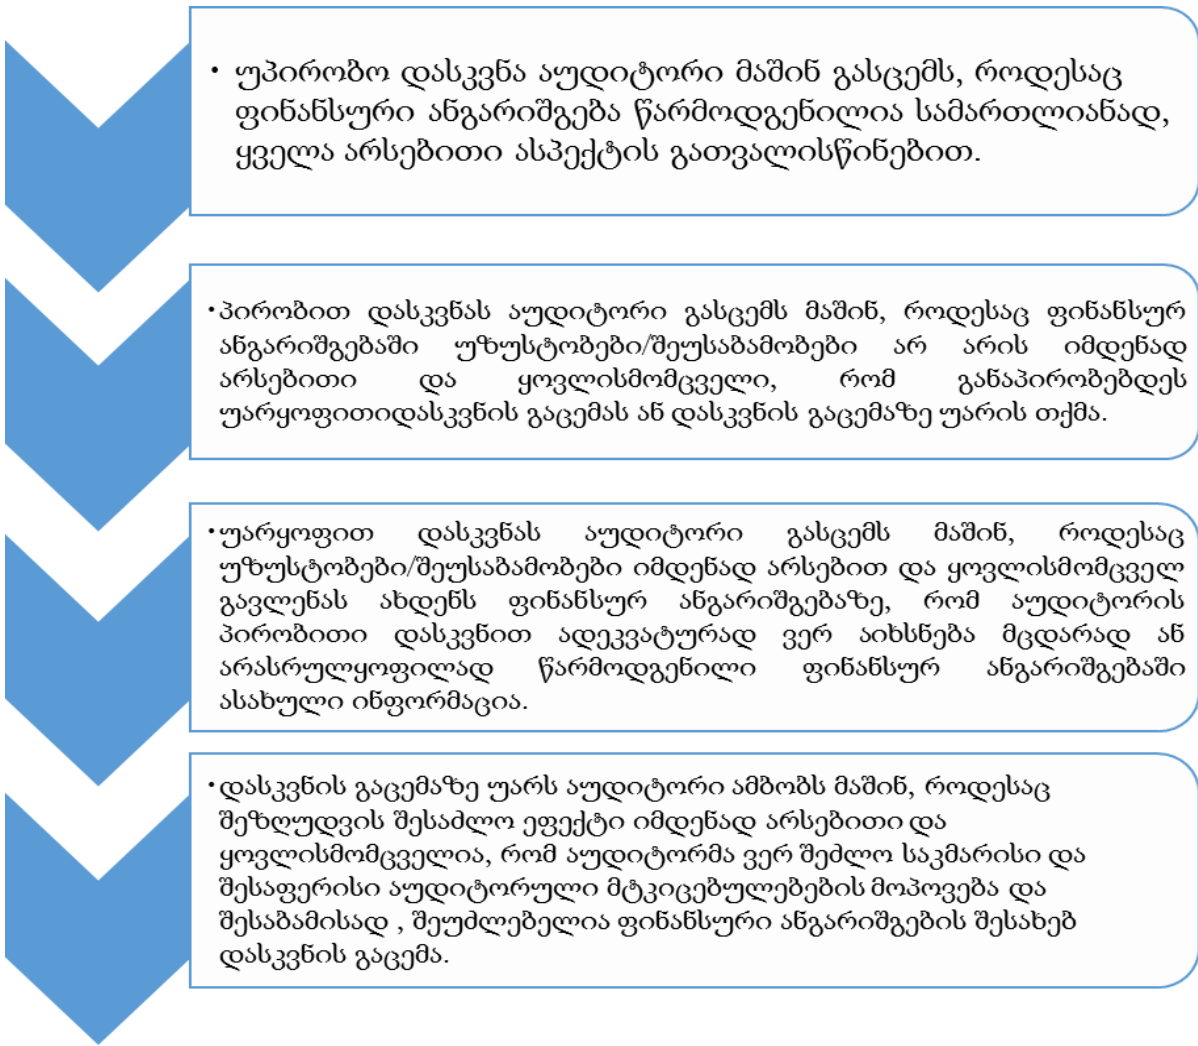 • უპირობო დასკვნა აუდიტორი მაშინ გასცემს, როდესაც
ფინანსური ანგარიშგება წარმოდგენილია სამართლიანად,
ყველა არსებითი ასპექტის გათვალისწინებით.
•პირობით დასკვნას აუდიტორი გასცემს მაშინ, როდესაც ფინანსურ
ანგარიშგებაში უზუსტობები/შეუსაბამობები არ არის იმდენად
არსებითი და ყოვლისმომცველი, რომ განაპირობებდეს
უარყოფითიდასკვნის გაცემას ან დასკვნის გაცემაზე უარის თქმა.
•უარყოფით დასკვნას აუდიტორი გასცემს მაშინ, როდესაც
უზუსტობები/შეუსაბამობები იმდენად არსებით და ყოვლისმომცველ
გავლენას ახდენს ფინანსურ ანგარიშგებაზე, რომ აუდიტორის
პირობითი დასკვნით ადეკვატურად ვერ აიხსნება მცდარად ან
არასრულყოფილად წარმოდგენილი ფინანსურ ანგარიშგებაში
ასახული ინფორმაცია.
•დასკვნის გაცემაზე უარს აუდიტორი ამბობს მაშინ, როდესაც
შეზღუდვის შესაძლო ეფექტი იმდენად არსებითი და
ყოვლისმომცველია, რომ აუდიტორმა ვერ შეძლო საკმარისი და
შესაფერისი აუდიტორული მტკიცებულებების მოპოვება და
შესაბამისად , შეუძლებელია ფინანსური ანგარიშგების შესახებ
დასკვნის გაცემა.